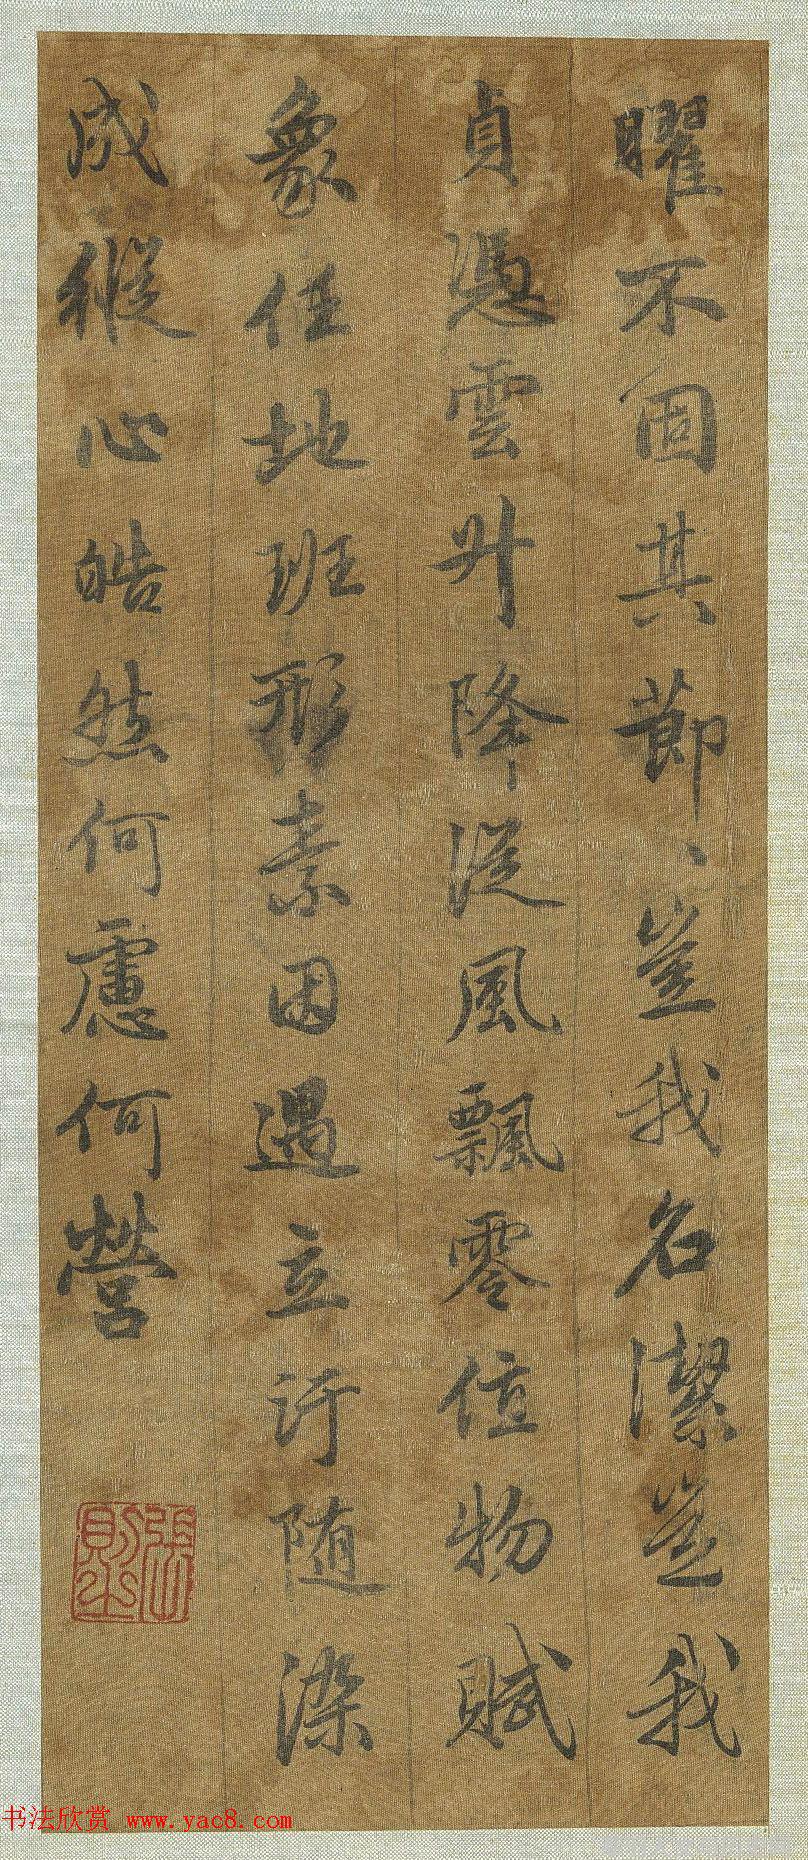 曜不固其節、豈我名潔豈我
貞憑雲升降從風飄零值物賦
象任地班形素因遇立汙随染
成縱心皓然何慮何營
书法欣赏 www.yac8.com